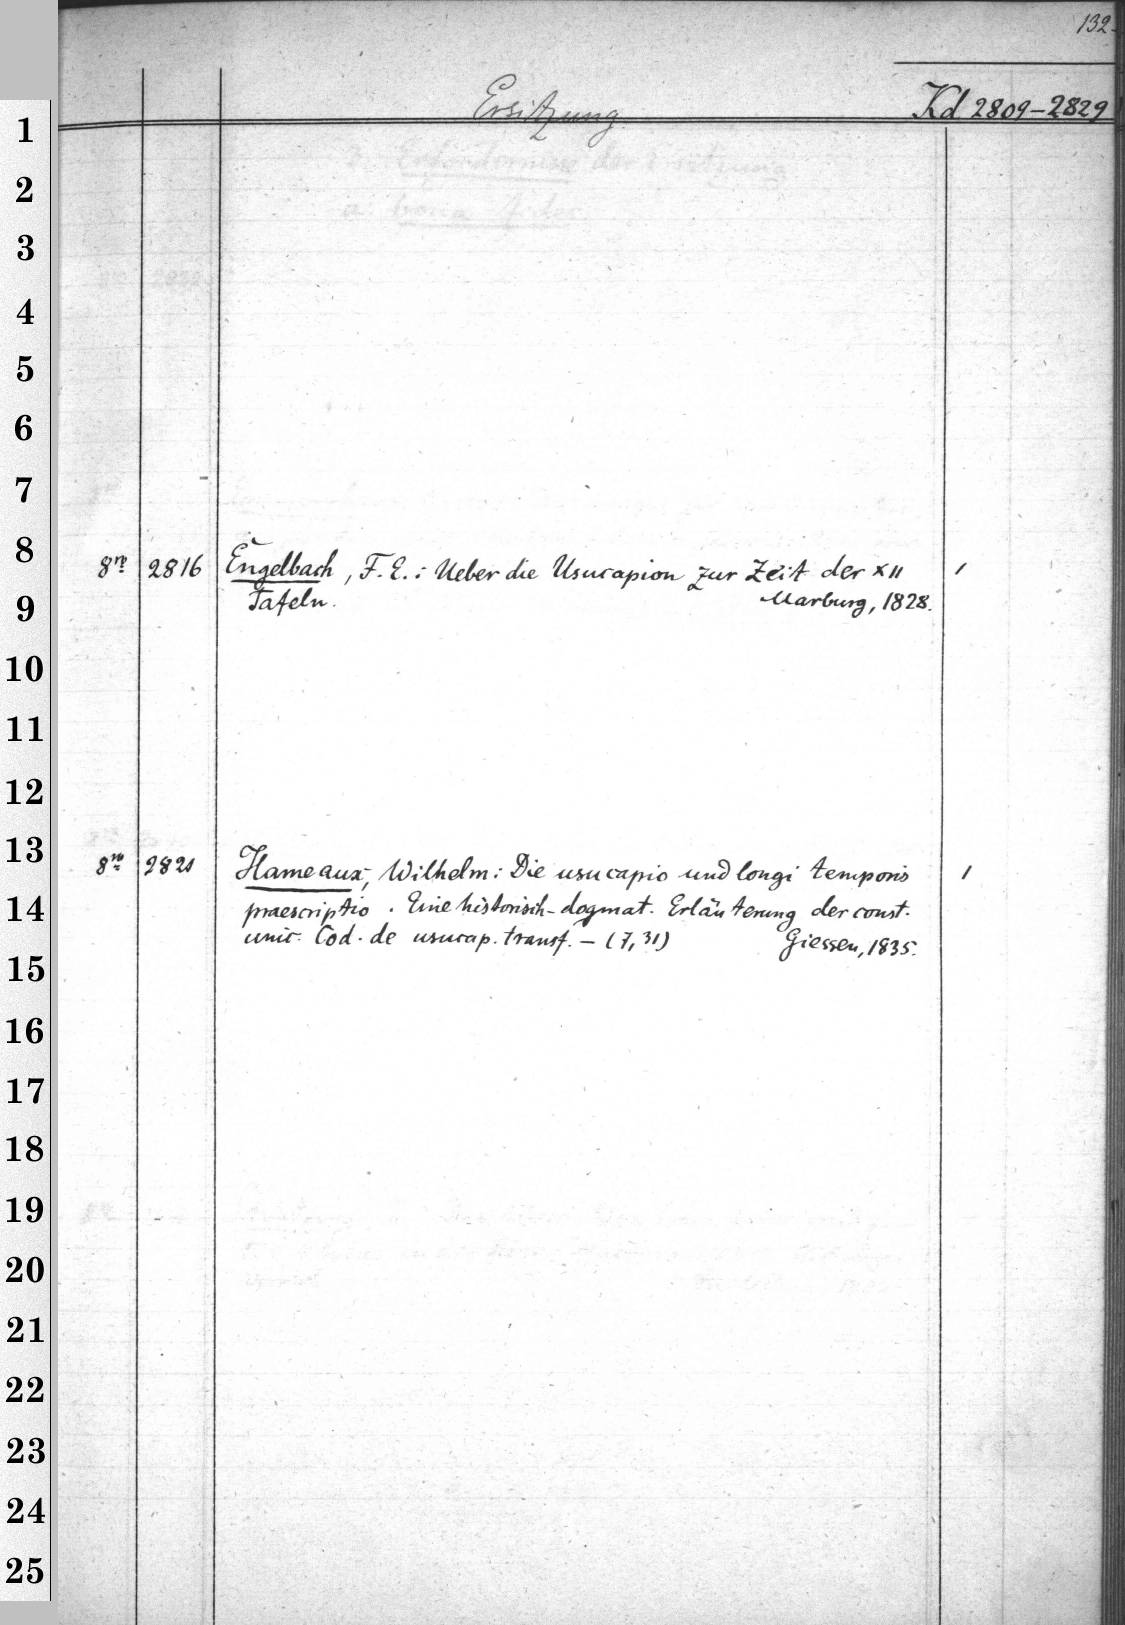 132.
Ersitzung
Kd 2809-2829
1
2
3
4
5
6
7
8
8vo 2816 Engelbach, F. E.: Ueber die Usucapion zur Zeit der XII 1
9
Tafeln. Marburg, 1828.
10
11
12
13
8vo 2821 Hameaux, Wilhelm: Die usucapio und longi temporis 1
14
praescriptio. Eine historisch-dogmat. Erläuterung der const.
unic. Cod. de usucap. transf. - (7, 31) Giessen, 1835.
15
16
17
18
19
20
21
22
23
24
25